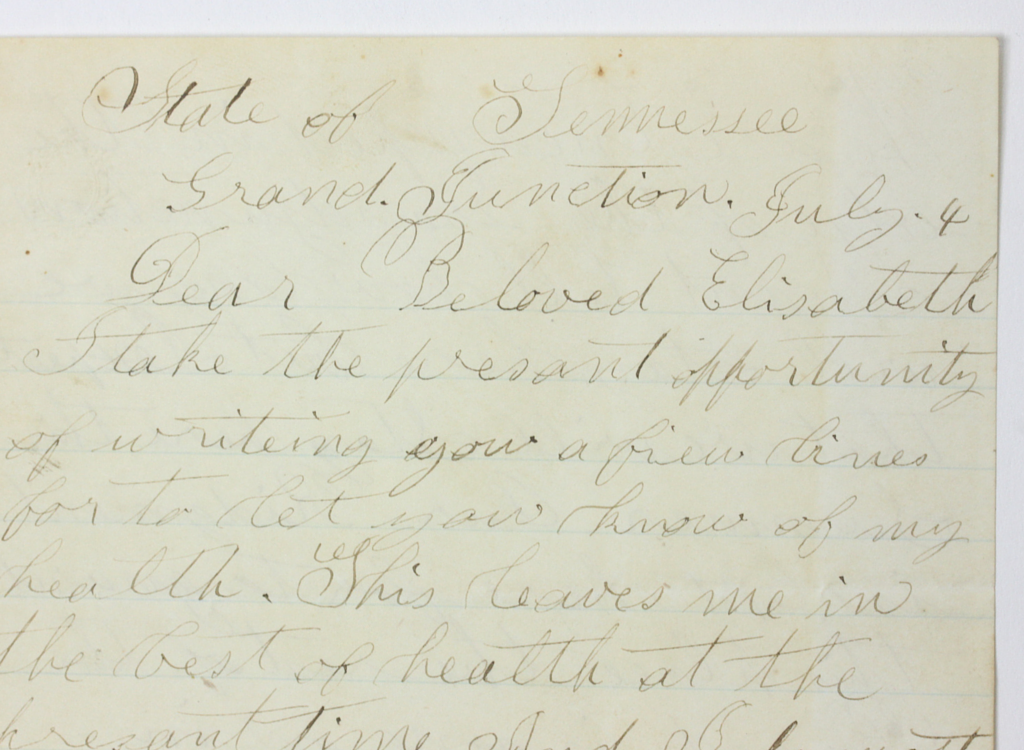 State of Tennessee
Grand. Junction. July. 4
Dear Beloved Elisabeth
I take the presant opportunity
of writeing yow a fiew lines
for to let yow know of my
health. This leaves me in
the best of health at the
presant time And I